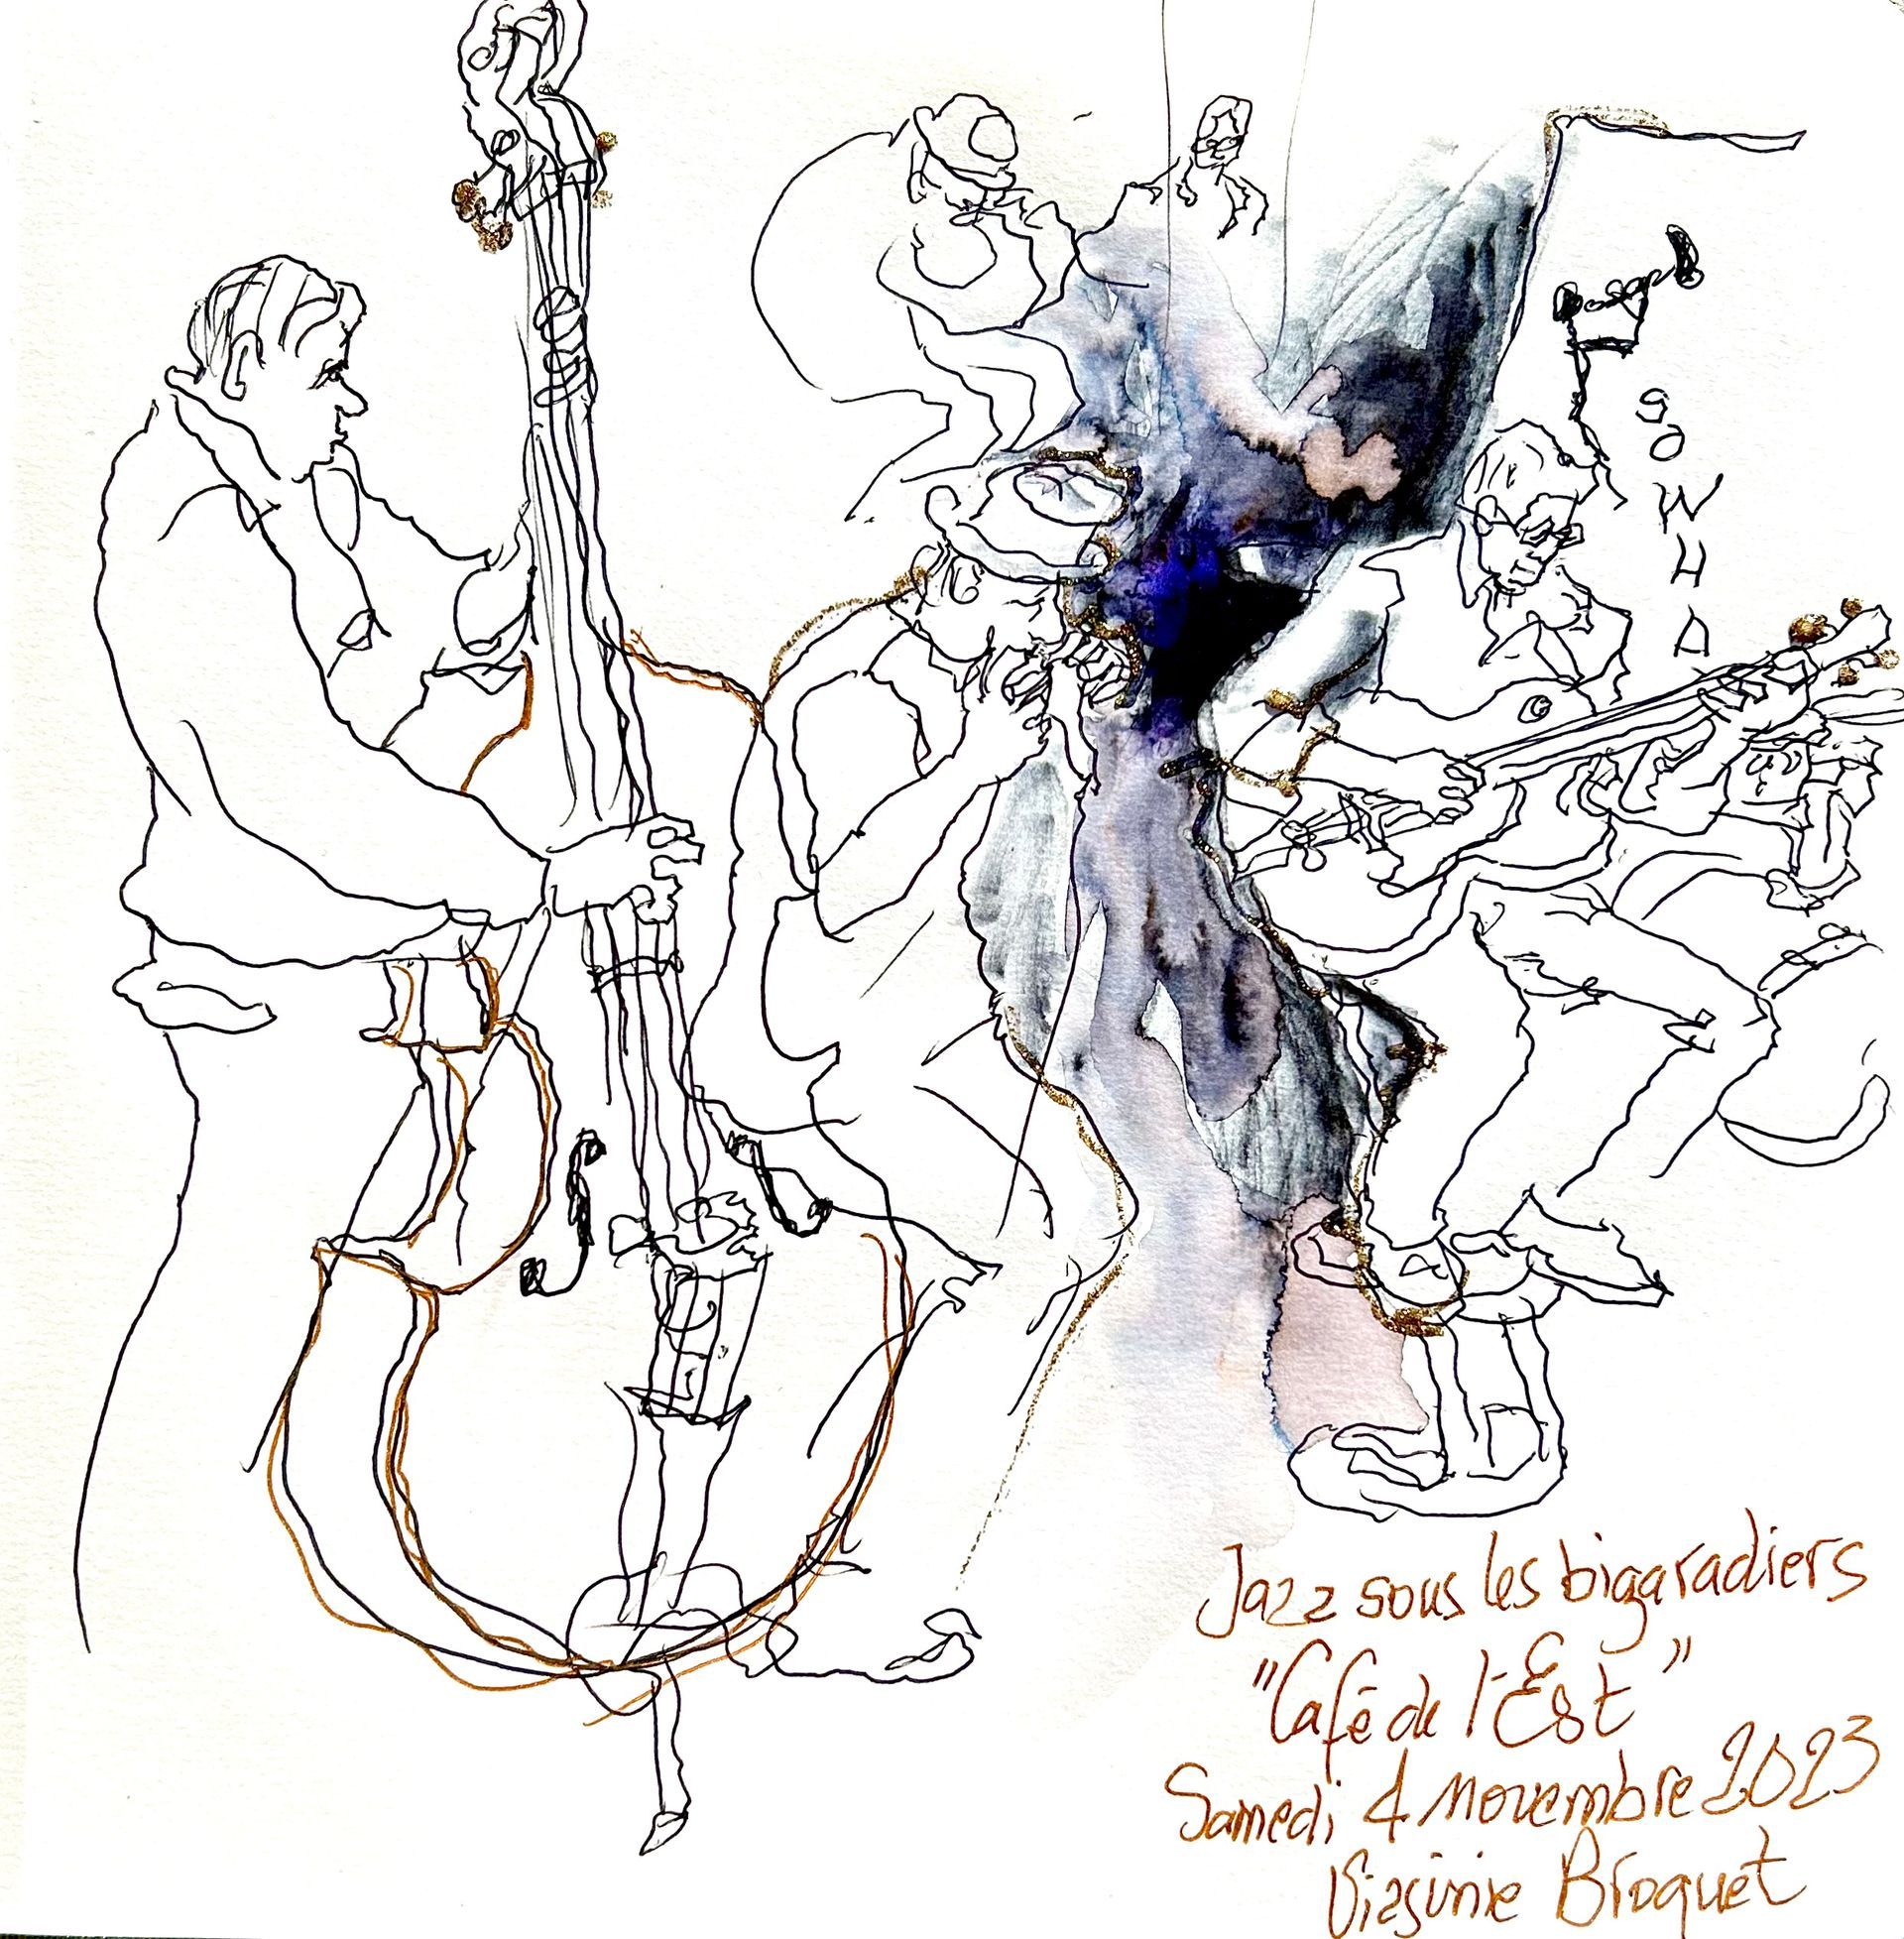 GO WHA
Jazz sous les bigaradiers
"Café de l'Est"
Samedi 4 novembre 2023
Virginie Broquet